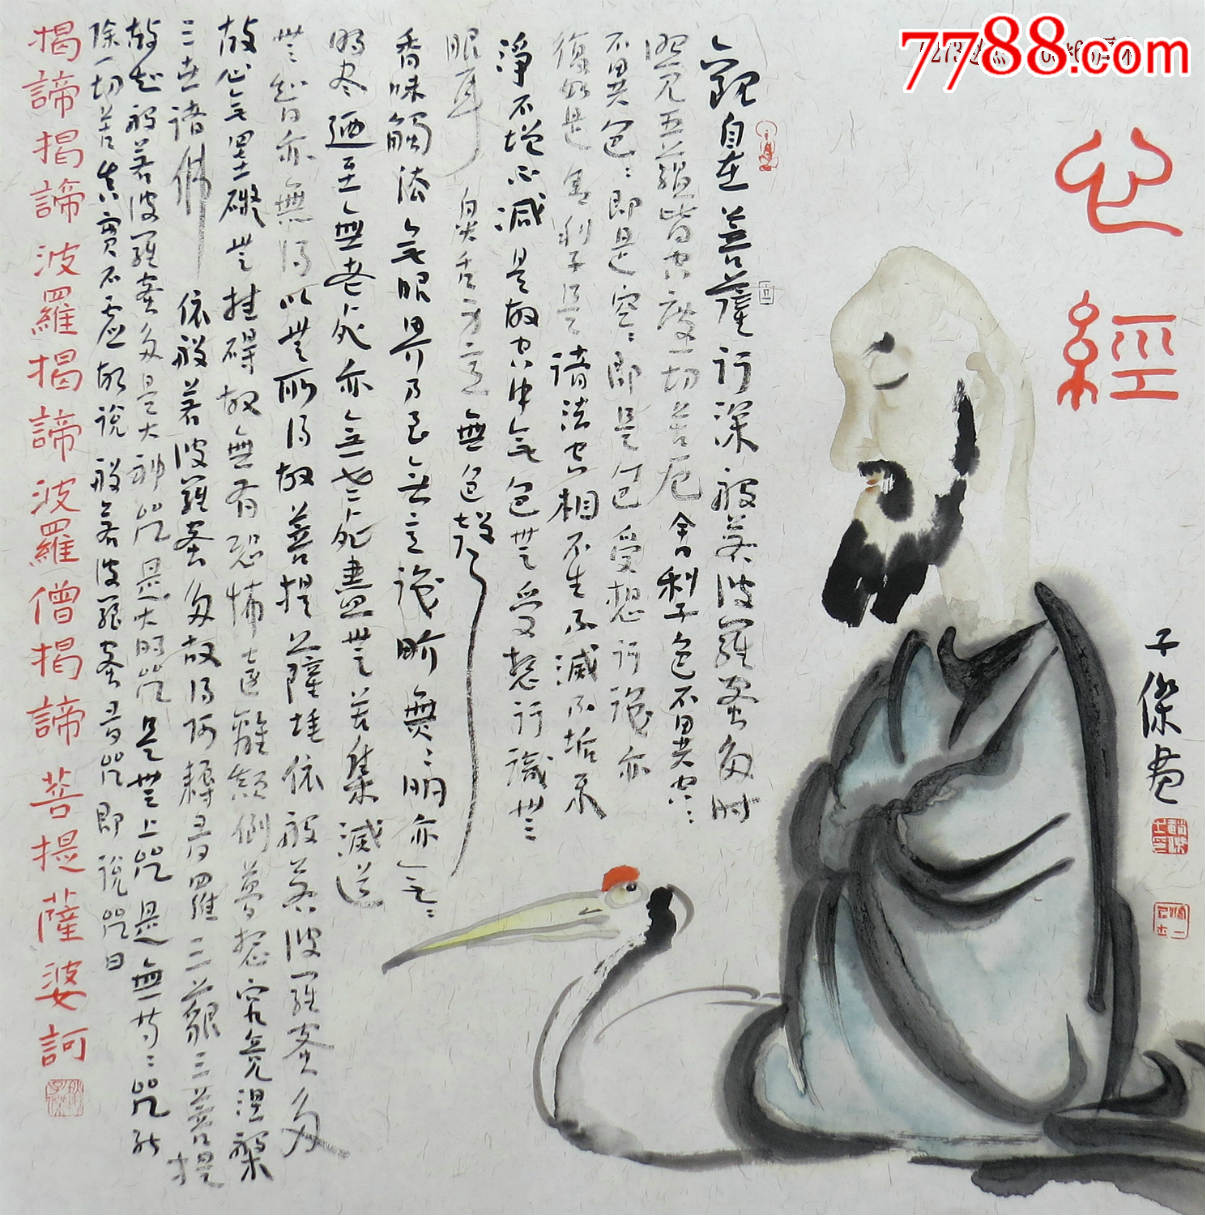 7788.com
心經
觀自在菩薩行深般若波羅蜜多時
照見五蘊皆空度一切苦厄舍利子色不異空々
不異色々即是空々即是色受想行識亦
復如是舍利子是諸法空相不生不滅不垢不
淨不增不減是故空中無色無受想行識無
眼耳鼻舌身意無色聲
香味觸法無眼界乃至無意識界無々明亦無々
明尽廼至無老死亦無老死盡無苦集滅道
無智亦無得以無所得故菩提薩埵依般若波羅蜜多
故心無罣礙無挂碍故無有恐怖遠離顛倒夢想究竟涅槃
三世諸佛依般若波羅蜜多故得阿耨多羅三藐三菩提
故知般若波羅蜜多是大神咒是大明咒是無上咒是無等々咒能
除一切苦真實不虛故說般若波羅蜜多咒即說咒曰
揭諦揭諦波羅揭諦波羅僧揭諦菩提薩婆訶
子傑畫